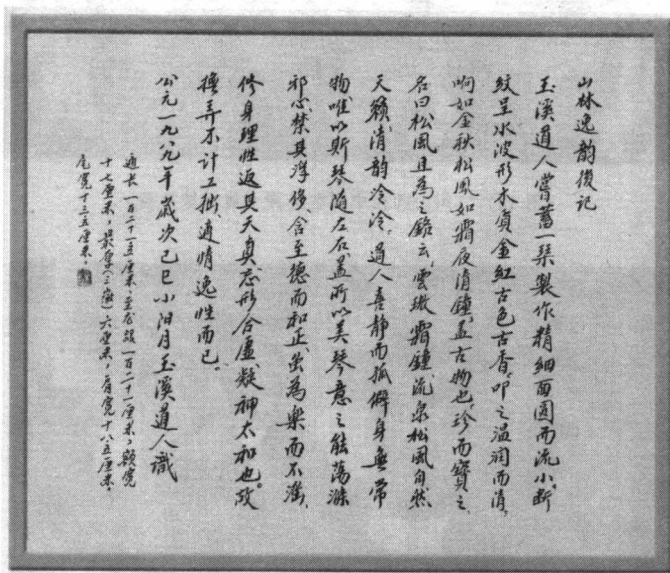 山林逸韵後记
玉溪道人嘗蓄一琴製作精细面圆而流小断
纹呈水波形木質金红古色古香叩之温润而清，
响如金秋松风如霜夜清鐘，盖古物也，珍而寶之，
名曰松风且為之錄云，雲璈霜鐘，流泉松风自然
天籁，清韵泠泠，道人喜静而孤僻身無常
物唯以斯琴隨左右盖所以美琴意之能荡滌
邪心禁其浮侈，含至德而和正，虽為樂而不淫，
修身理性返其天真忘形合虚凝神太和也。故
撫弄不计工拙，適情逸性而已。
公元一九八九年歲次己巳小阳月玉溪道人識
通长一百二十一·五厘米，至龙龈一百二十一厘米，额宽
十七厘米，最厚（三徽）六厘米，肩宽十八·五厘米，
尾宽十三·五厘米。